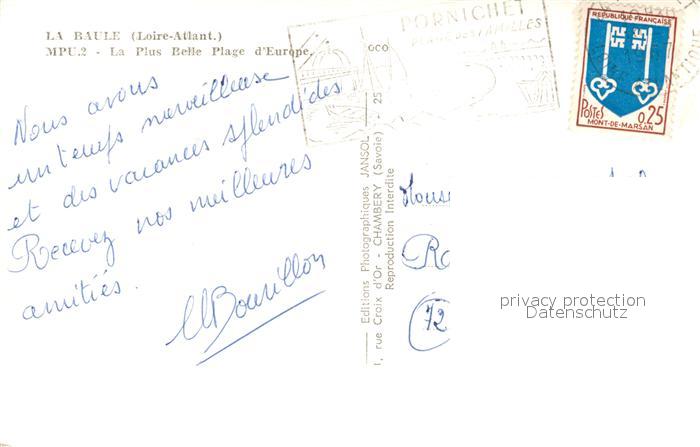 LA BAULE (Loire-Atlant.)
MPU.2 - La Plus Belle Plage d'Europe.
Nous avons
un temps merveilleux
et des vacances splendides
Recevez nos meilleures
amitiés.
Editions Photographiques JANSOL
1, rue Croix d'Or - CHAMBERY (Savoie) - 25
Reproduction Interdite
PORNICHET
PLAGE DES FAMILLES
REPUBLIQUE FRANÇAISE
POSTES 0,25
MONT-DE-MARSAN
72
privacy protection
Datenschutz